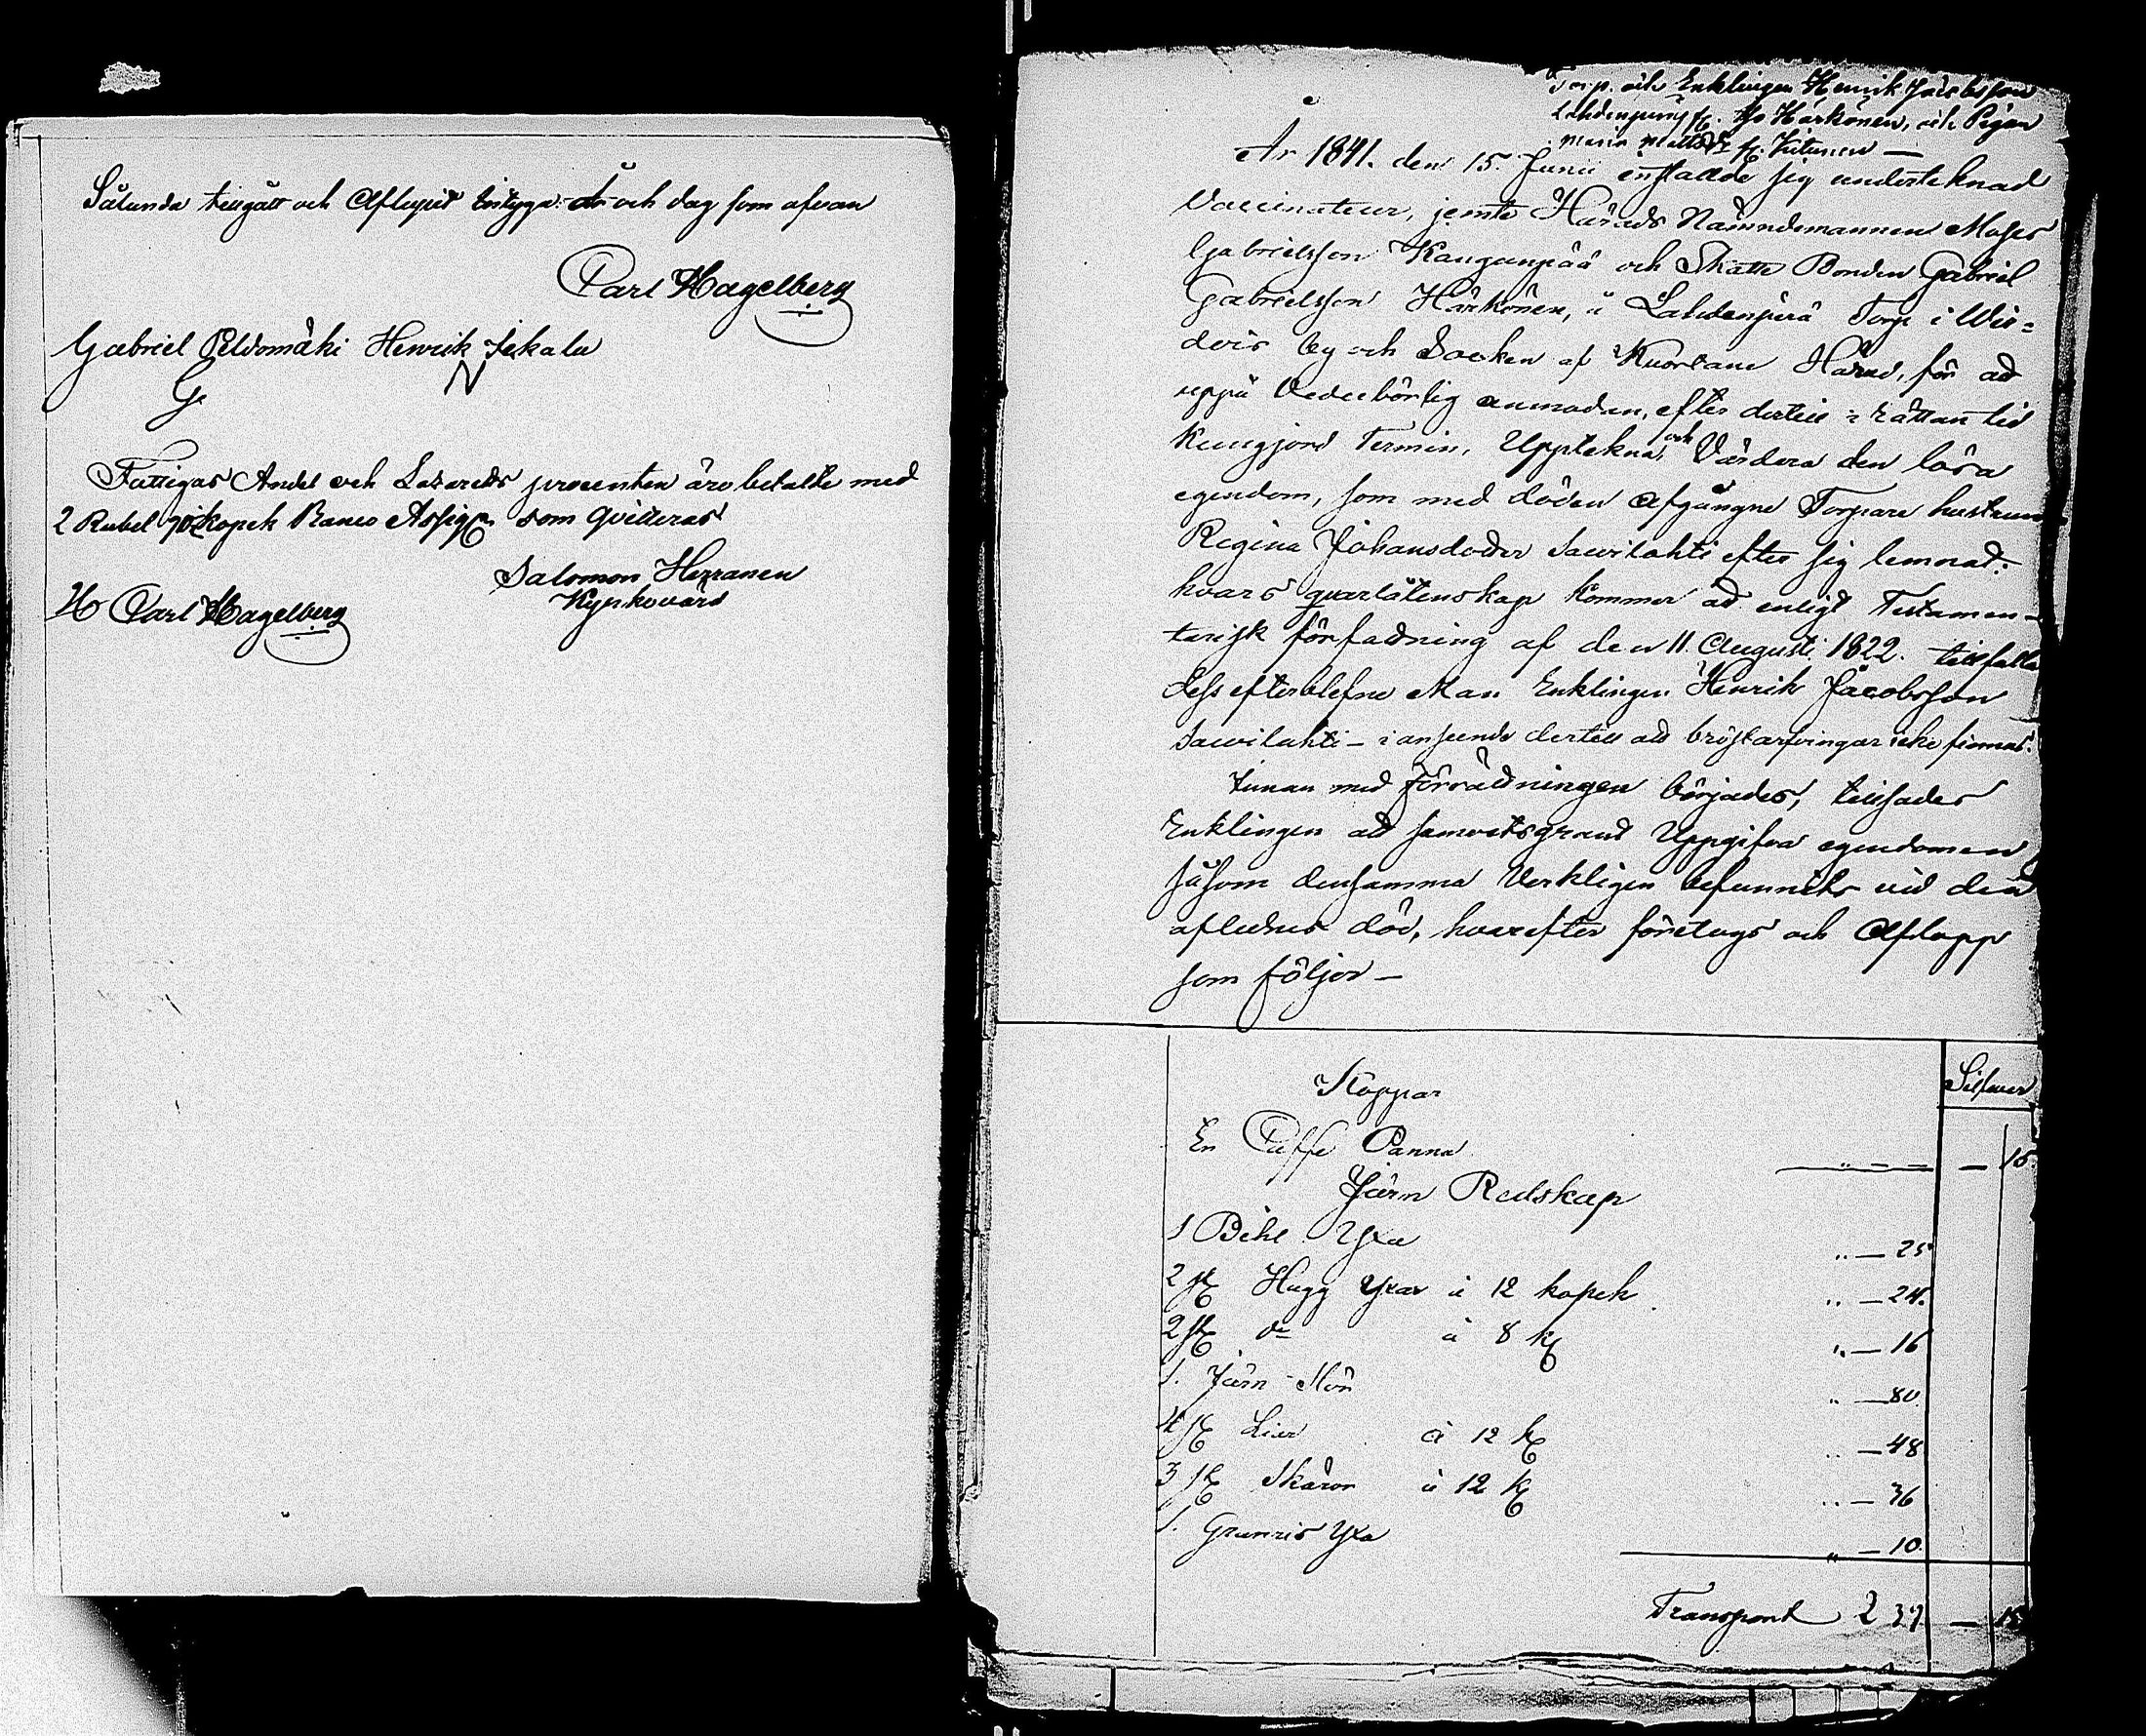 Sålunda tillgått och Aflupit Intyga År och dag som ofvan
Carl Hagelberg
Gabriel Peldomäki Henrik Jskala
G.
Fattigas Andel och Lazaretts procenten äro betalte med
2 Rubel kopek Banco Assign som qvitteras
Salomon Herranen
Kyrkovärd
Carl Hagelberg
Torp. och Enklingen Henrik Jacobsson
Härkönen, och Pigan
Maria
År 1841. den 15. Junii instälde sig underteknad
Vaccinateur, jemte Härads Nämndemannen Moses
Gabrielsson Kanganpää och Skatte Bonden Gabriel
Gabrielsson Härkönen, å Lahdenperä Torp i Wir=
dois by och Socken af Kuortane Härad, för att
uppå Vederbörlig anmodan, efter dertill i rättan tid
kungjord Termin, Upptekna och Värdera den lösa
egendom, som med döden afgångne Torpare hustrun
Regina Johansdotter Sawilahti efter sig lemnat:
hvars qvarlåtenskap kommer att enligt Testamen-
tarisk författning af den 11 Augusti 1822. tillfalla
dess efterblefne Man Enklingen Henrik Jacobsson
Sawilahti - i anseende dertill att bröstarfvingar icke finnas.
Innan med förrättningen börjades, tillsades
Enklingen att samvetsgrant Uppgifva egendomen
såsom densamma Verkligen befunnits vid den
aflednes död, hvarefter företogs och Aflopp
som följer -
Silfwer
Koppar
En Caffe Panna " - - — 15.
Järn Redskap
1 Bihl Yxa " — 25
2 st Hugg Yxar à 12 kopek " — 24.
2 st do à 8 k " — 16
1. Järn Slör " — 80.
4 st Liar à 12 k " — 48
3 st Skäror à 12 k " — 36
1. Granris Yxa " — 10.
Transport 2 39. — 15